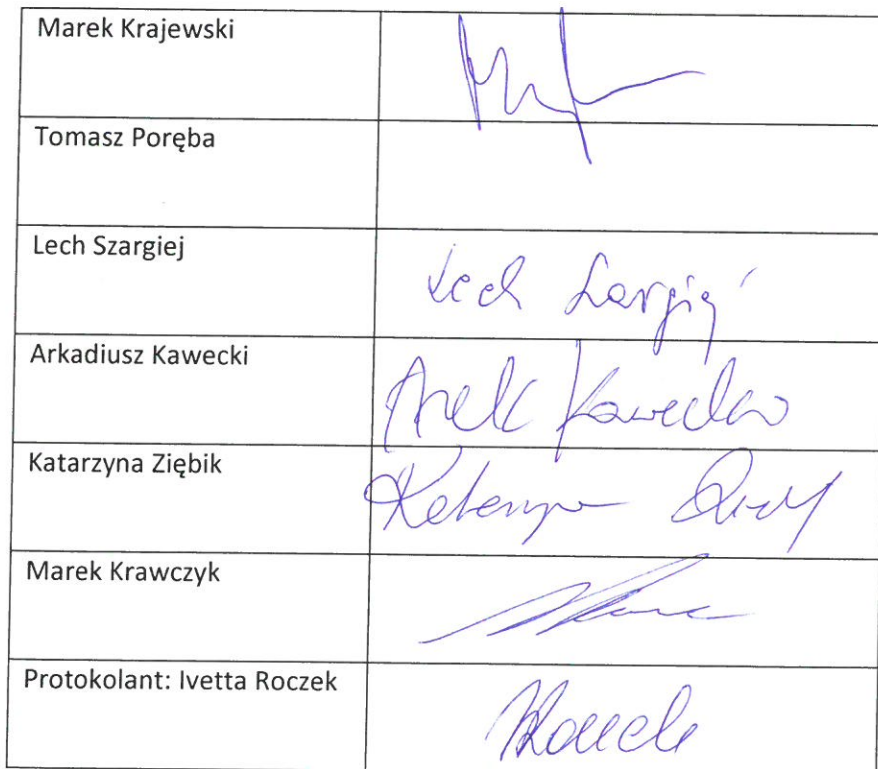 Marek Krajewski
Tomasz Poręba
Lech Szargiej
Lech Szargiej
Arkadiusz Kawecki
Arek Kawecki
Katarzyna Ziębik
Katarzyna
Marek Krawczyk
Protokolant: Ivetta Roczek